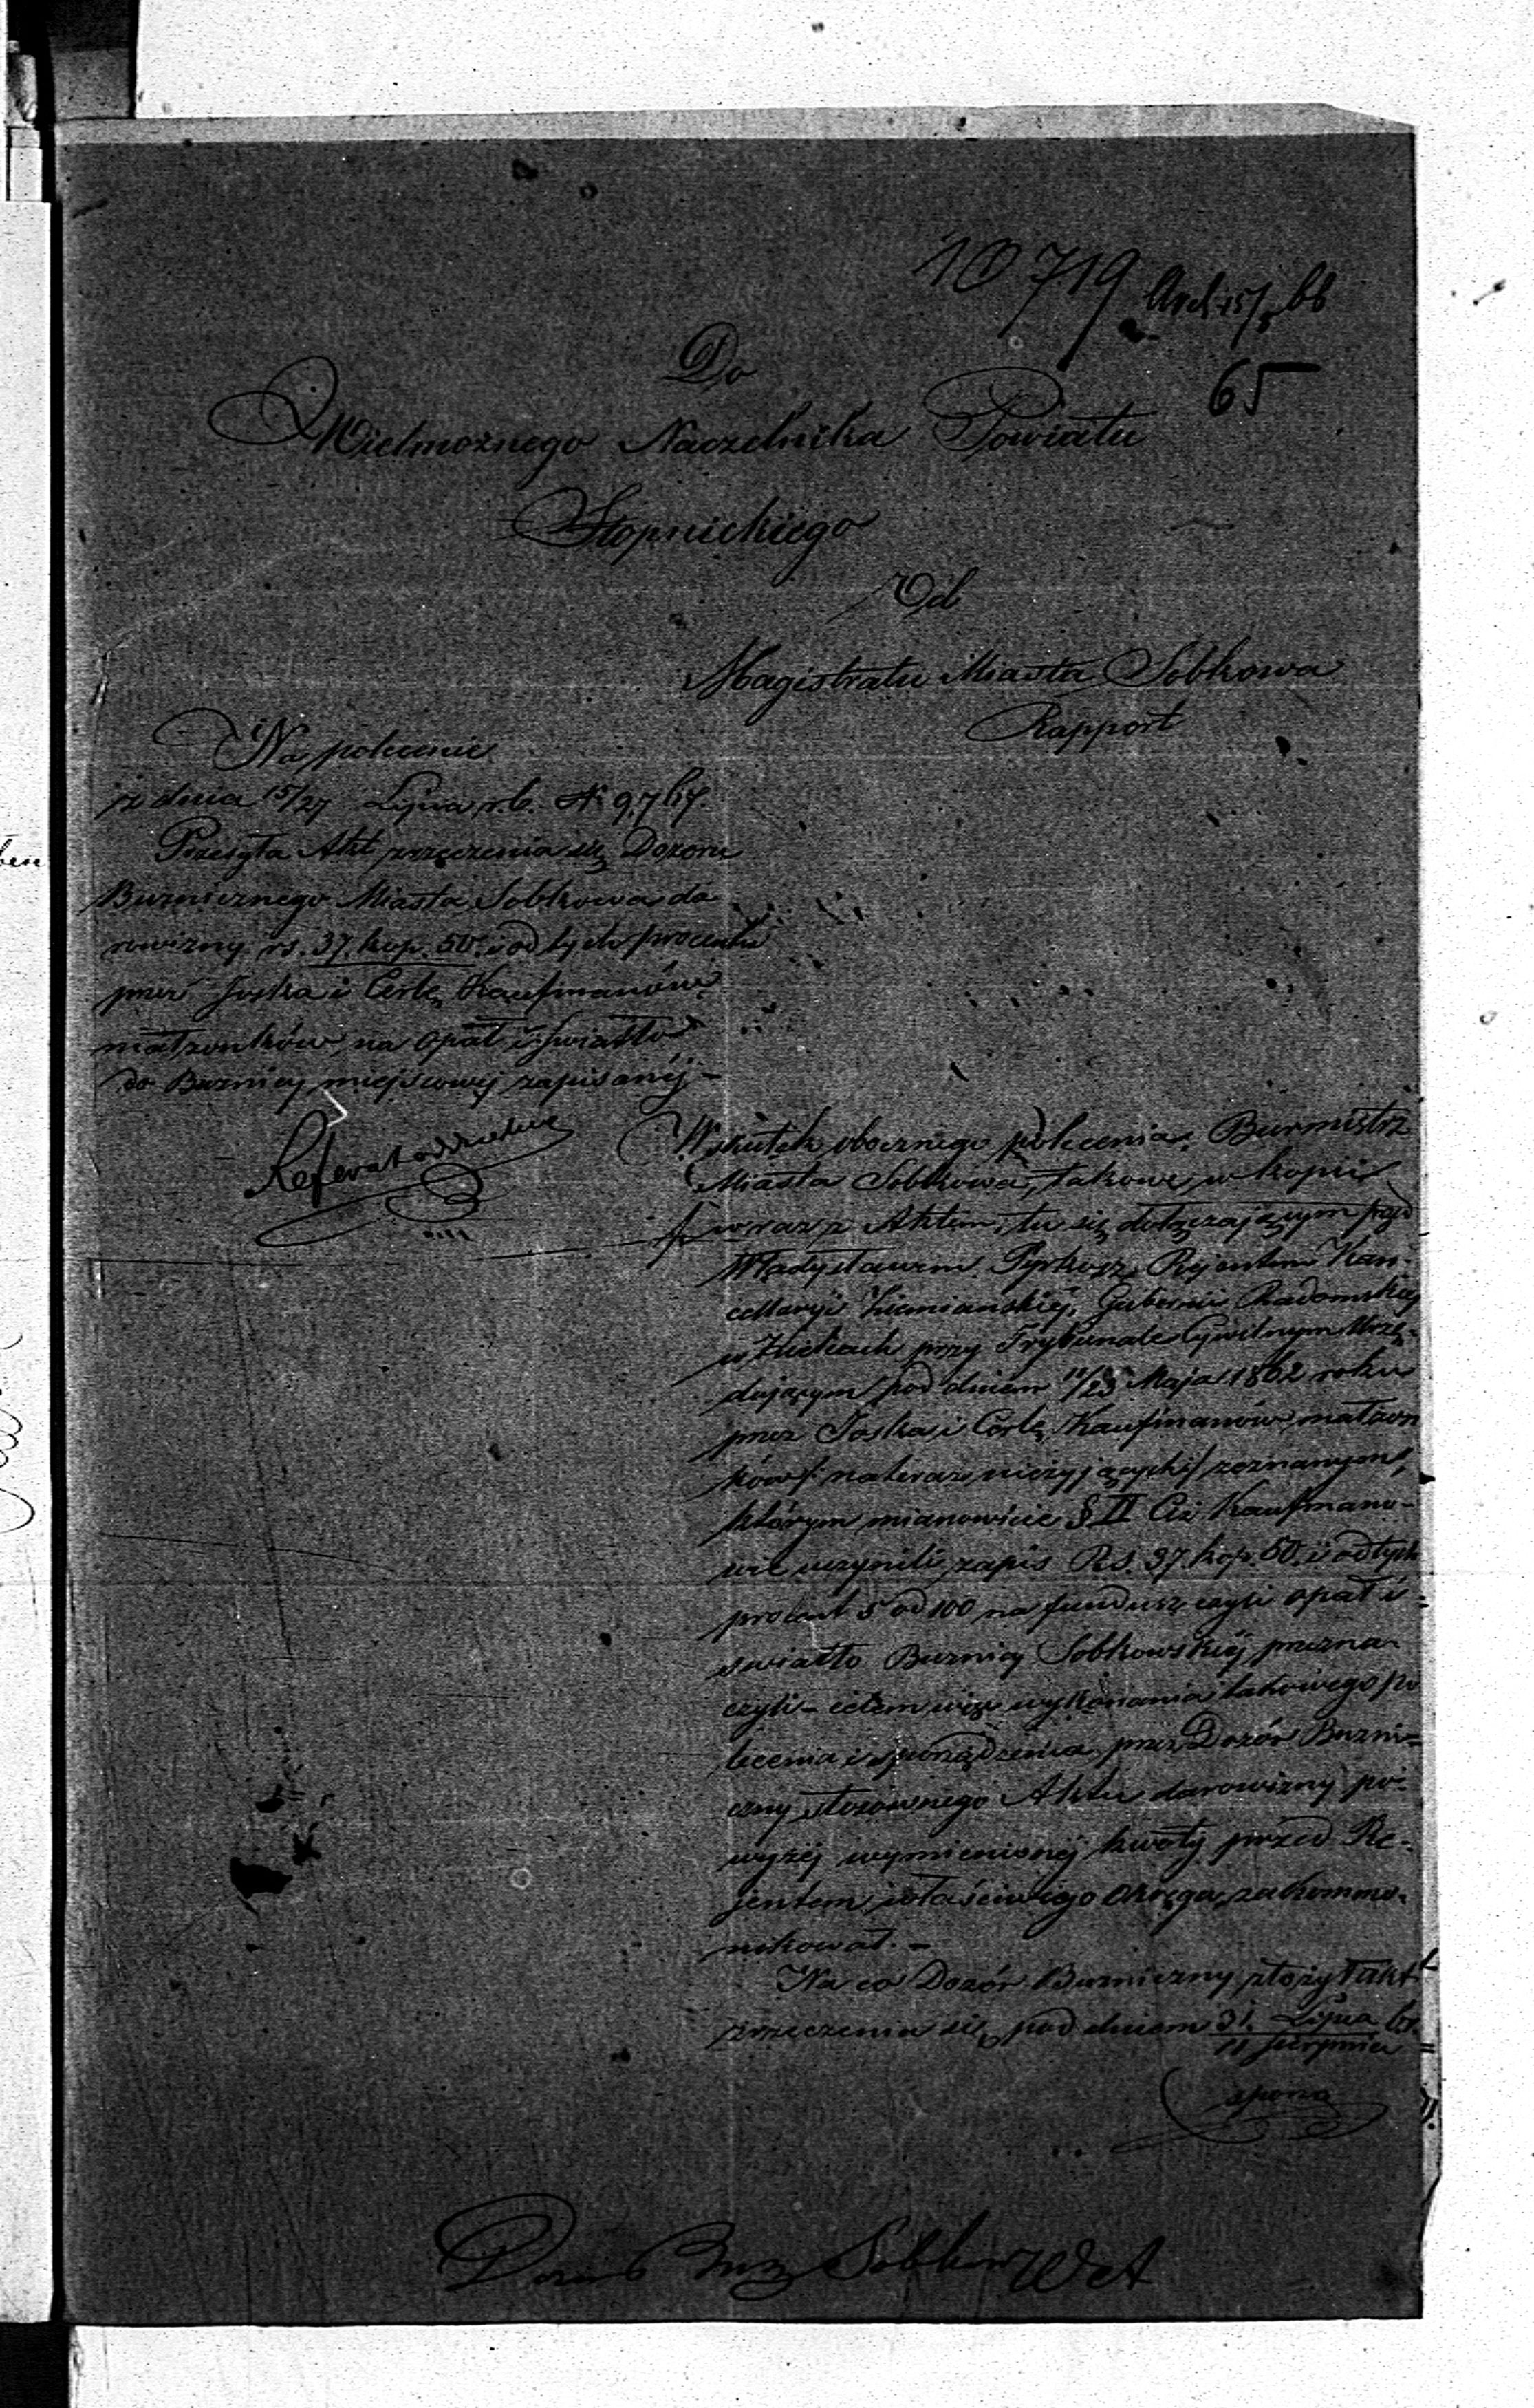 10719
65
Do
Wielmożnego Naczelnika Powiatu
Stopnickiego
Od
Magistratu Miasta Sobkowa
Rapport
Na polecenie
z dnia 15/27 Lipca r.b. N
Przesyła Akt zrzeczenia się Dozoru
Bużnicznego Miasta Sobkowa da
rowizny rs. 37. kop. 50. i od tych procentu
przez Joska i Cerlę Kaufmanów
małżonków, na opał i światło
do Bużnicy miejscowej zapisanéj –
Wskutek obocznego polecenia, Burmistrz
Miasta Sobkowa, takowe w kopii
wraz z Aktem, tu się dołączającym przed
Władysławem Pyrkosz Rejentem Kan-
cellaryi Ziemiańskiéj, Gubernii Radomskiéj
w Kielcach przy Trybunale Cywilnym Urzę-
dującym pod dniem 11/23 Maja 1862 roku
przez Joska i Cerlę Kaufmanów małżon
ków / nateraz nieżyjących / zeznanym,
którym mianowicie § II Ciż Kaufmano-
wie uczynili zapis Rs. 37 kop. 50. i od tych
procent 5 od 100 na fundusz czyli opał i
światło Bużnicy Sobkowskiéj przezna-
czyli – celem więc wykonania takowego po
lecenia i sporządzenia przez Dozór Bużni-
czny stosownego Aktu darowizny po-
wyżéj wymienionéj kwoty przed Re-
jentem właściwego Okręgu, zakommu-
nikował. –
Na co Dozór Bużniczny złożył akt
zrzeczenia się pod dniem 31. Lipca br.
Sierpnia
Sobkow